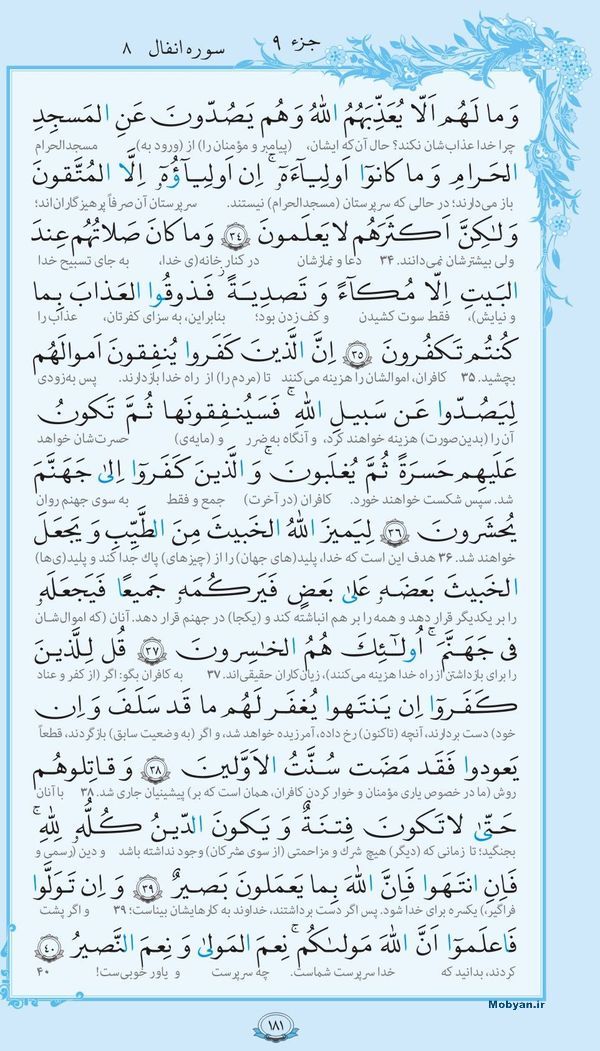 جزء ۹ سوره انفال ۸
وَما لَهُم اَلّا يُعَذِّبَهُمُ اللّٰهُ وَهُم يَصُدّونَ عَنِ المَسجِدِ
چرا خدا عذاب‌شان نکند؟ حال آن‌که ایشان، (پیامبر و مؤمنان را) از (ورود به) مسجدالحرام
الحَرامِ وَما كانوٓا اَولِيآءَهٗ ۚ اِن اَولِيآؤُهٗٓ اِلَّا المُتَّقونَ
باز می‌دارند؛ در حالی که سرپرستان (مسجدالحرام) نیستند. سرپرستان آن صرفاً پرهیزگاران‌اند؛
وَلٰكِنَّ اَكثَرَهُم لا يَعلَمونَ ﴿۳۴﴾ وَما كانَ صَلاتُهُم عِندَ
ولی بیشترشان نمی‌دانند. ۳۴ دعا و نمازشان در کنار خانه‌(ی خدا، به جای تسبیح خدا
البَيتِ اِلّا مُكآءً وَ تَصدِيَةً ۚ فَذوقُوا العَذابَ بِما
و نیایش)، فقط سوت کشیدن و کف‌زدن بود؛ بنابراین، به سزای کفرتان، عذاب را
كُنتُم تَكفُرونَ ﴿۳۵﴾ اِنَّ الَّذينَ كَفَروا يُنفِقونَ اَموالَهُم
بچشید. ۳۵ کافران، اموالشان را هزینه می‌کنند تا (مردم را) از راه خدا بازدارند. پس به‌زودی
لِيَصُدّوا عَن سَبيلِ اللّٰهِ ۚ فَسَيُنفِقونَها ثُمَّ تَكونُ
آن را (بدین‌صورت) هزینه خواهند کرد، و آنگاه به ضرر و (مایه‌ی) حسرت‌شان خواهد
عَلَيهِم حَسرَةً ثُمَّ يُغلَبونَ ۗ وَ الَّذينَ كَفَروٓا اِلىٰ جَهَنَّمَ
شد. سپس شکست خواهند خورد. کافران (در آخرت) جمع و فقط به سوی جهنم روان
يُحشَرونَ ﴿۳۶﴾ لِيَميزَ اللّٰهُ الخَبيثَ مِنَ الطَّيِّبِ وَ يَجعَلَ
خواهند شد. ۳۶ هدف این است که خدا، پلید(های جهان) را از (چیزهای) پاك جدا کند و پلید(ی‌ها)
الخَبيثَ بَعضَهٗ عَلىٰ بَعضٍ فَيَركُمَهٗ جَميعًا فَيَجعَلَهٗ
را بر یکدیگر قرار دهد و همه را بر هم انباشته کند و (یکجا) در جهنم قرار دهد. آنان (که اموال‌شان
فى جَهَنَّمَ ۚ اُولٰٓئِكَ هُمُ الخٰسِرونَ ﴿۳۷﴾ قُل لِلَّذينَ
را برای بازداشتن از راه خدا هزینه می‌کنند)، زیان‌کاران حقیقی‌اند. ۳۷ به کافران بگو: اگر (از کفر و عناد
كَفَروٓا اِن يَنتَهوا يُغفَر لَهُم ما قَد سَلَفَ وَ اِن
خود) دست بردارند، آنچه (تاکنون) رخ داده، آمرزیده خواهد شد، و اگر (به وضعیت سابق) بازگردند، قطعاً
يَعودوا فَقَد مَضَت سُنَّتُ الاَوَّلينَ ﴿۳۸﴾ وَ قاتِلوهُم
روش (ما در خصوص یاری مؤمنان و خوار کردن کافران، همان است که بر) پیشینیان جاری شد. ۳۸ با آنان
حَتّىٰ لا تَكونَ فِتنَةٌ وَ يَكونَ الدّينُ كُلُّهٗ لِلّٰهِ ۚ
بجنگید؛ تا زمانی که (دیگر) هیچ شرك و مزاحمتی (از سوی مشرکان) وجود نداشته باشد و دین (رسمی و
فَاِنِ انتَهَوا فَاِنَّ اللّٰهَ بِما يَعمَلونَ بَصيرٌ ﴿۳۹﴾ وَ اِن تَوَلَّوا
فراگیر)، یکسره برای خدا شود. پس اگر دست برداشتند، خداوند به کارهایشان بیناست؛ ۳۹ و اگر پشت
فَاعلَموٓا اَنَّ اللّٰهَ مَولىٰكُم ۚ نِعمَ المَولىٰ وَ نِعمَ النَّصيرُ ﴿۴۰﴾
کردند، بدانید که خدا سرپرست شماست. چه سرپرست و یاور خوبی‌ست! ۴۰
Mobyan.ir
۱۸۱